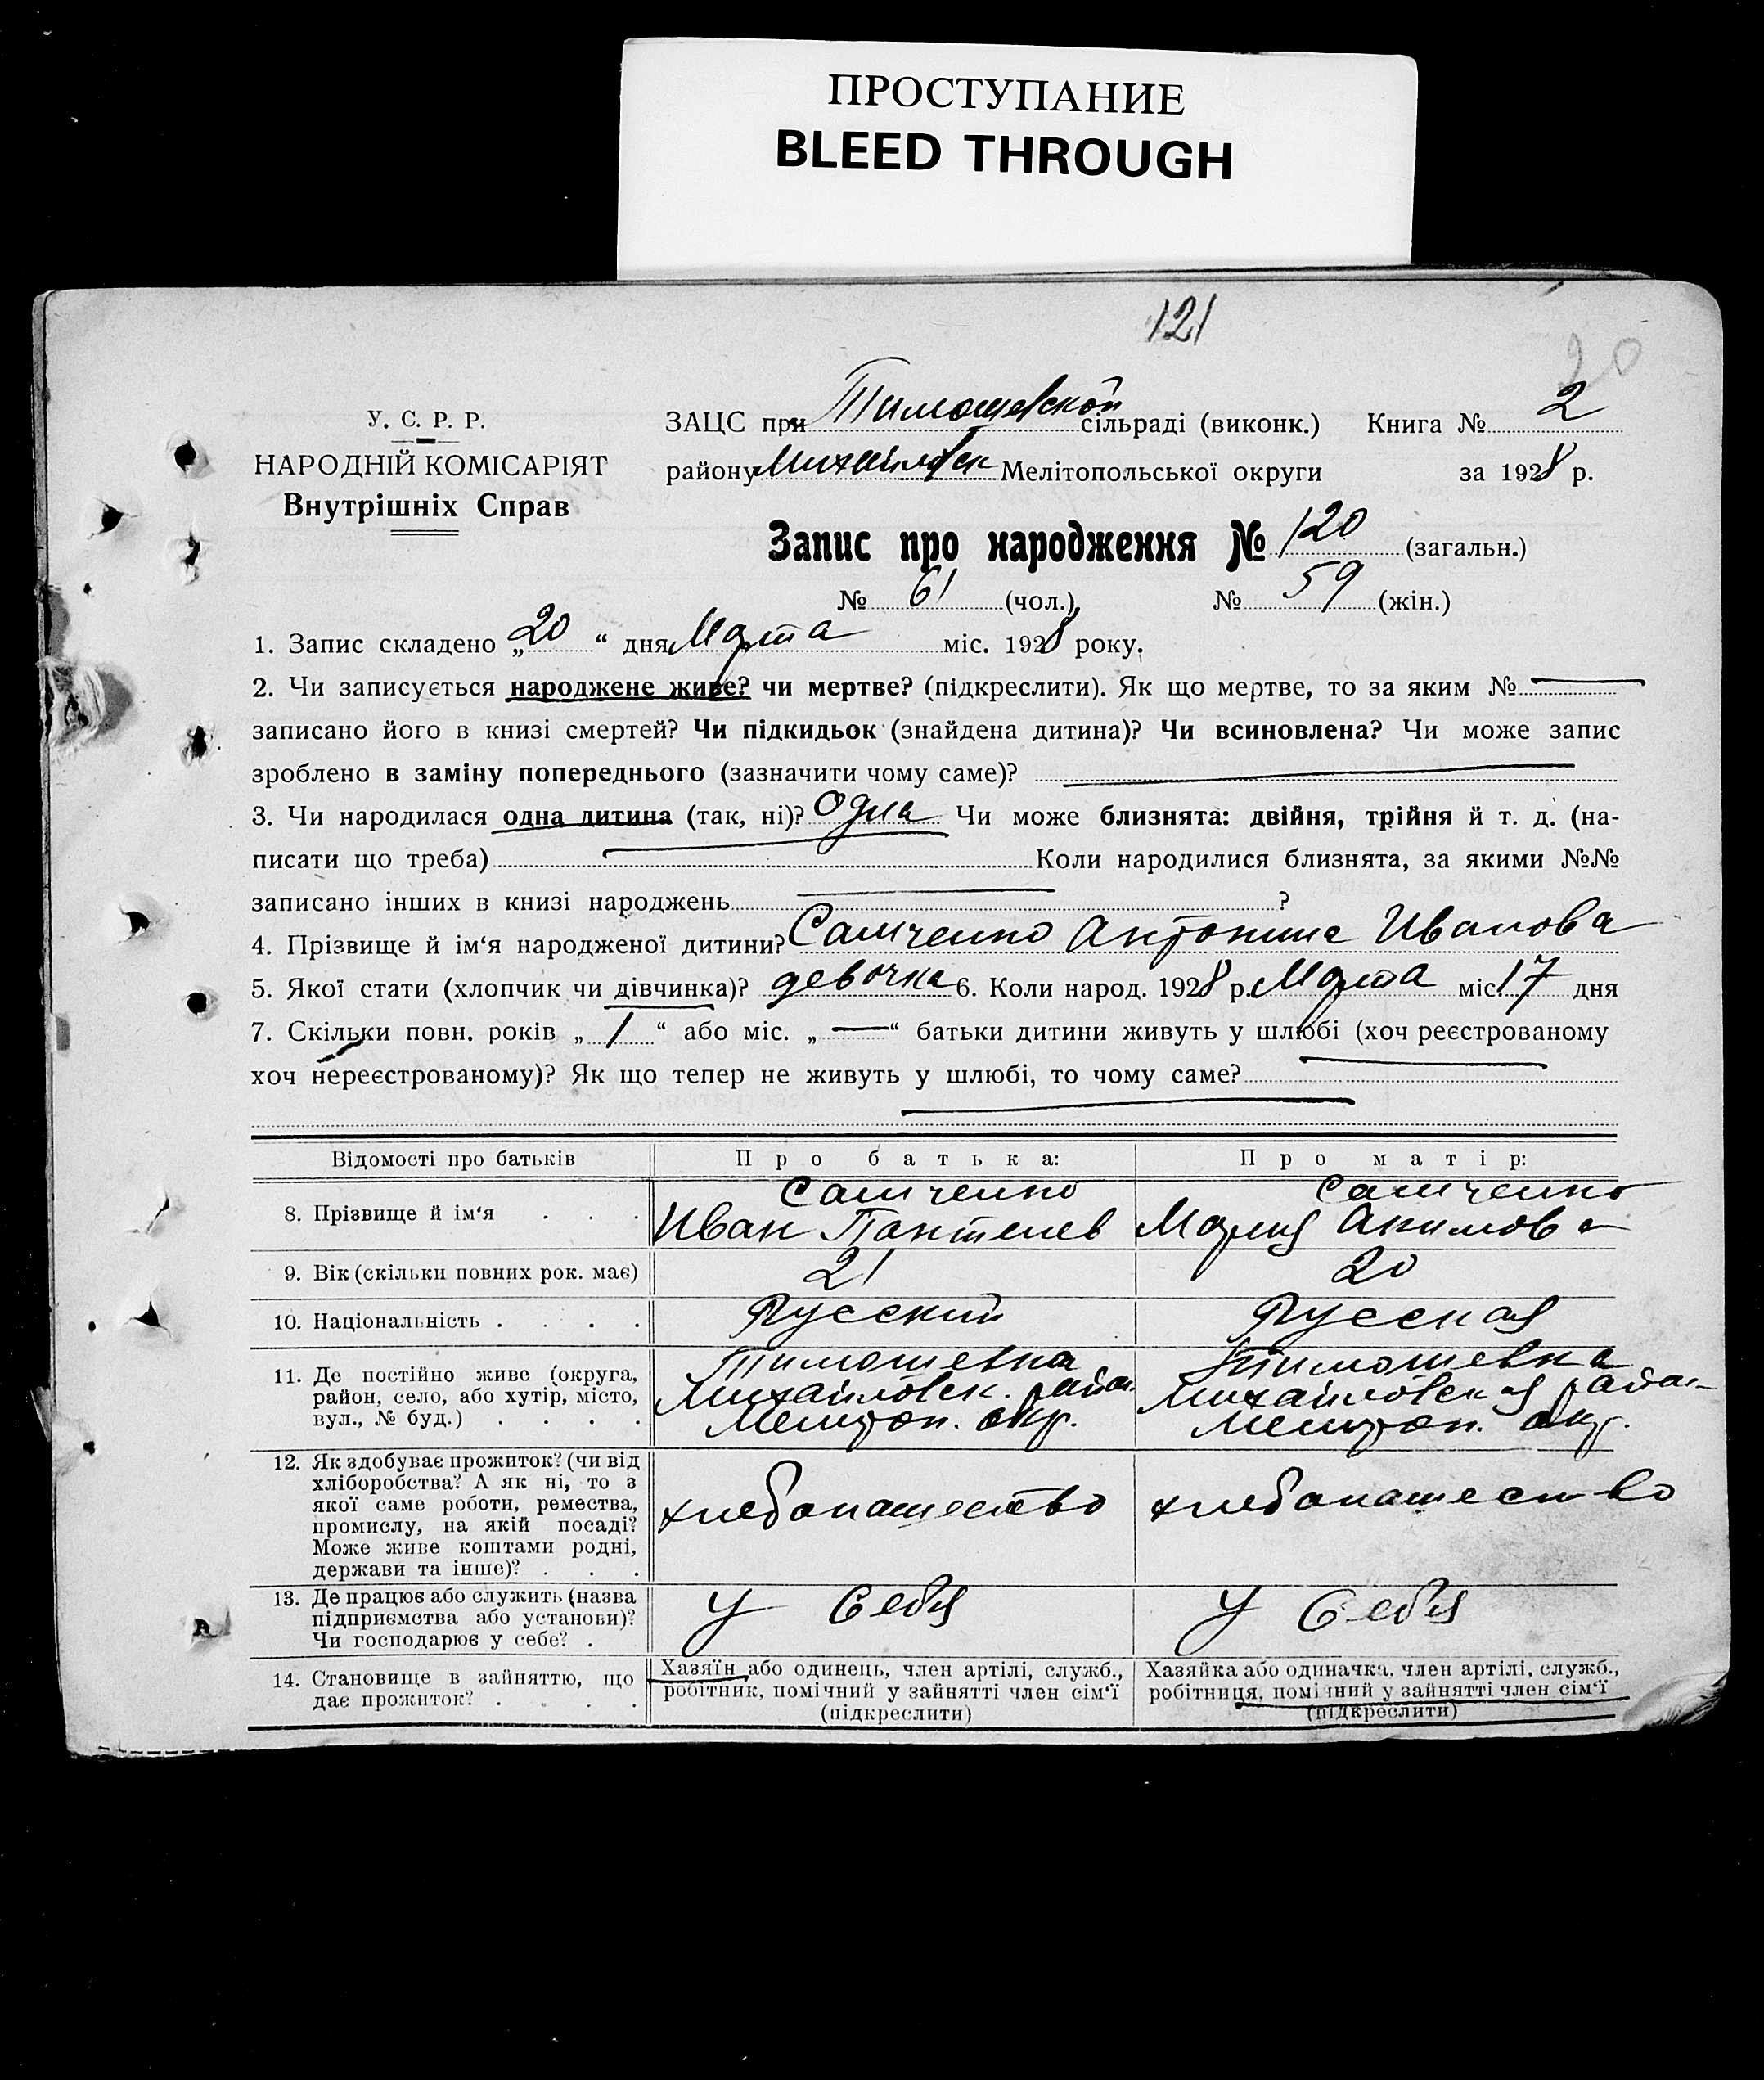 ПРОСТУПАНИЕ
BLEED THROUGH
121
20
У. С. Р. Р.
НАРОДНІЙ КОМІСАРІЯТ
Внутрішніх Справ
ЗАЦС при Тимошевской сільраді (виконк.) Книга № 2
району Михайловск Мелітопольської округи за 1928 р.
Запис про народження № 120 (загальн.)
№ 61 (чол.) № 59 (жін.)
1. Запис складено „20“ дня Марта міс. 1928 року.
2. Чи записується народжене живе? чи мертве? (підкреслити). Як що мертве, то за яким №
записано його в книзі смертей? Чи підкидьок (знайдена дитина)? Чи всиновлена? Чи може запис
зроблено в заміну попереднього (зазначити чому саме)?
3. Чи народилася одна дитина (так, ні)? Одна Чи може близнята: двійня, трійня й т. д. (на-
писати що треба) Коли народилися близнята, за якими №№
записано інших в книзі народжень ?
4. Прізвище й ім‘я народженої дитини? Антонина Иванова
5. Якої стати (хлопчик чи дівчинка)? девочка 6. Коли народ. 1928 р. Марта міс. 17 дня
7. Скільки повн. років „1“ або міс. „—“ батьки дитини живуть у шлюбі (хоч реєстрованому
хоч нереєстрованому)? Як що тепер не живуть у шлюбі, то чому саме?
Відомості про батьків Про батька: Про матір:
8. Прізвище й ім‘я . . .
Иван Пантелев
Мария Акимова
9. Вік (скільки повних рок. має) 21 20
10. Національність . . . . Русский Русская
11. Де постійно живе (округа,
район, село, або хутір, місто,
вул., № буд.) . . . .
Тимошевка
Михайловск. район
Мелитоп. окр.
Тимошевка
Михайловская район
Мелитоп. окр.
12. Як здобуває прожиток? (чи від
хліборобства? А як ні, то з
якої саме роботи, ремества,
промислу, на якій посаді?
Може живе коштами родні,
держави та інше)? . . .
хлебопашество
хлебопашество
13. Де працює або служить (назва
підприємства або установи)?
Чи господарює у себе? .
У себя
У себя
14. Становище в зайняттю, що
дає прожиток? . . . .
Хазяїн або одинець, член артілі, служб.,
робітник, помічний у зайнятті член сім‘ї
(підкреслити)
Хазяйка або одиначка, член артілі, служб.,
робітниця, помічний у зайнятті член сім‘ї
(підкреслити)